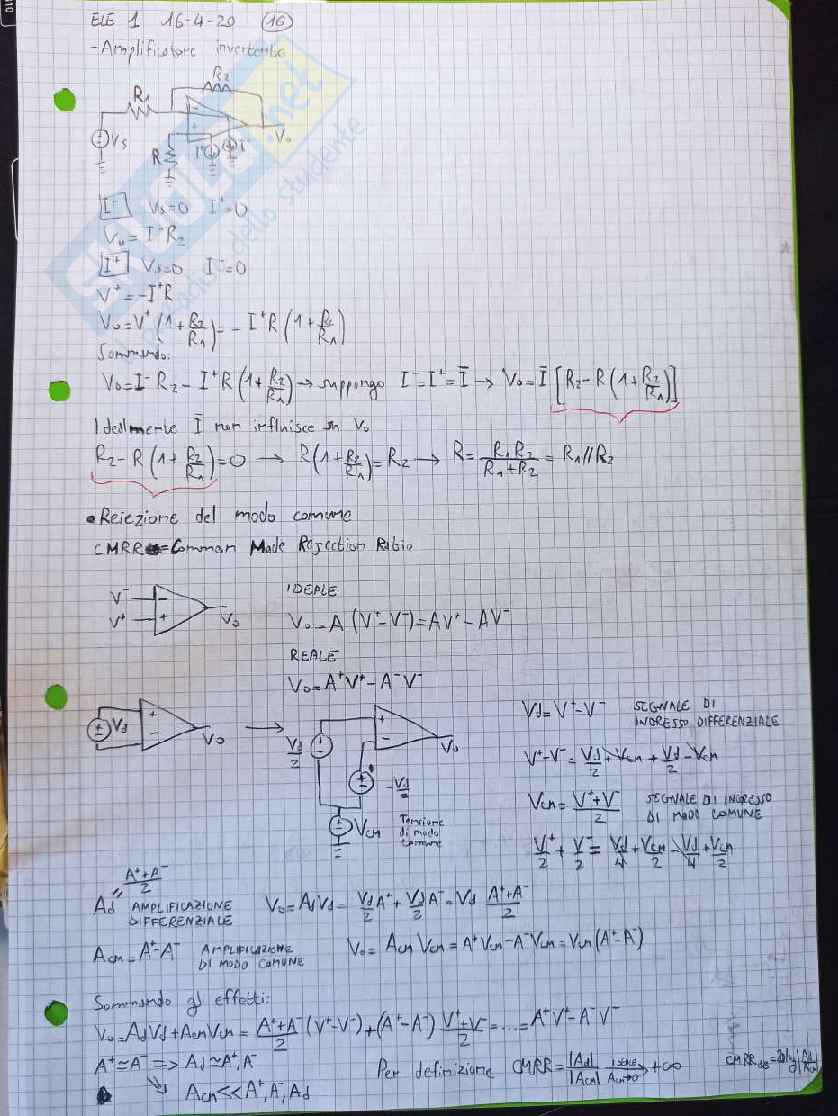 ELE 1 16-4-20 (16)
-Amplificatore invertente
R2
R1
Vs
R
I+
I-
Vo
I- Vs=0 I+=0
Vo=I-R2
I+ Vs=0 I-=0
V+=-I+R
Vo=V+(1+R2/R1)=-I+R(1+R2/R1)
Sommando:
Vo=I-R2-I+R(1+R2/R1)→suppongo I-=I+=Ī→Vo=Ī[R2-R(1+R2/R1)]
Idealmente Ī non influisce su Vo
R2-R(1+R2/R1)=0→R(1+R2/R1)=R2→R=R1R2/R1+R2=R1//R2
•Reiezione del modo comune
CMRR=Common Mode Rejection Ratio
V-
V+
Vo
IDEALE
Vo=A(V+-V-)=AV+-AV-
REALE
Vo=A+V+-A-V-
Vd
Vo
Vd/2
-Vd/2
Vo
VCM Tensione
di modo
comune
Vd=V+-V- SEGNALE DI
INGRESSO DIFFERENZIALE
V+-V-=Vd/2+VCM+Vd/2-VCM
VCM=V++V-/2 SEGNALE DI INGRESSO
DI MODO COMUNE
V+/2+V-/2=Vd/4+VCM/2-Vd/4+VCM/2
A++A-/2
Ad" AMPLIFICAZIONE
DIFFERENZIALE
Vo=AdVd=Vd/2A++Vd/2A-=Vd A++A-/2
ACM=A+-A- AMPLIFICAZIONE
DI MODO COMUNE
Vo=ACMVCM=A+VCM-A-VCM=VCM(A+-A-)
Sommando gli effetti:
Vo=AdVd+ACMVCM=A++A-/2(V+-V-)+(A+-A-)V++V-/2=...=A+V+-A-V-
A+≃A-⇒Ad≃A+,A-
ACM<<A+,A-,Ad
Per definizione CMRR=|Ad|/|ACM| IDEALE/ACM→0→+∞
CMRRdB=20log|Ad/ACM|